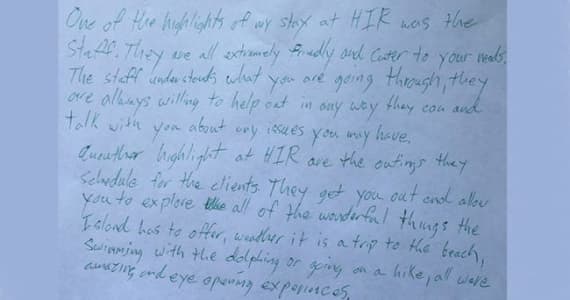 One of the highlights of my stay at HIR was the
Staff. They are all extremely friendly and cater to your needs.
The staff understands what you are going through, they
are allways willing to help out in any way they can and
talk with you about any issues you may have.
Another highlight at HIR are the outings they
Schedule for the clients. They get you out and allow
you to explore all of the wonderful things the
Island has to offer, weather it is a trip to the beach,
Swimming with the dolphins or going on a hike, all were
amazing and eye opening experiences.